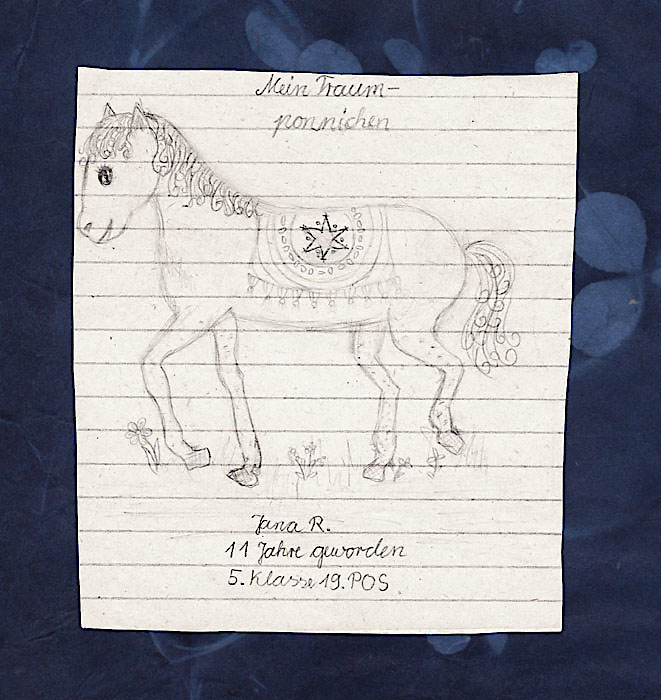 Mein Traum-
ponnichen
Jana R.
11 Jahre geworden
5. Klasse 19. POS